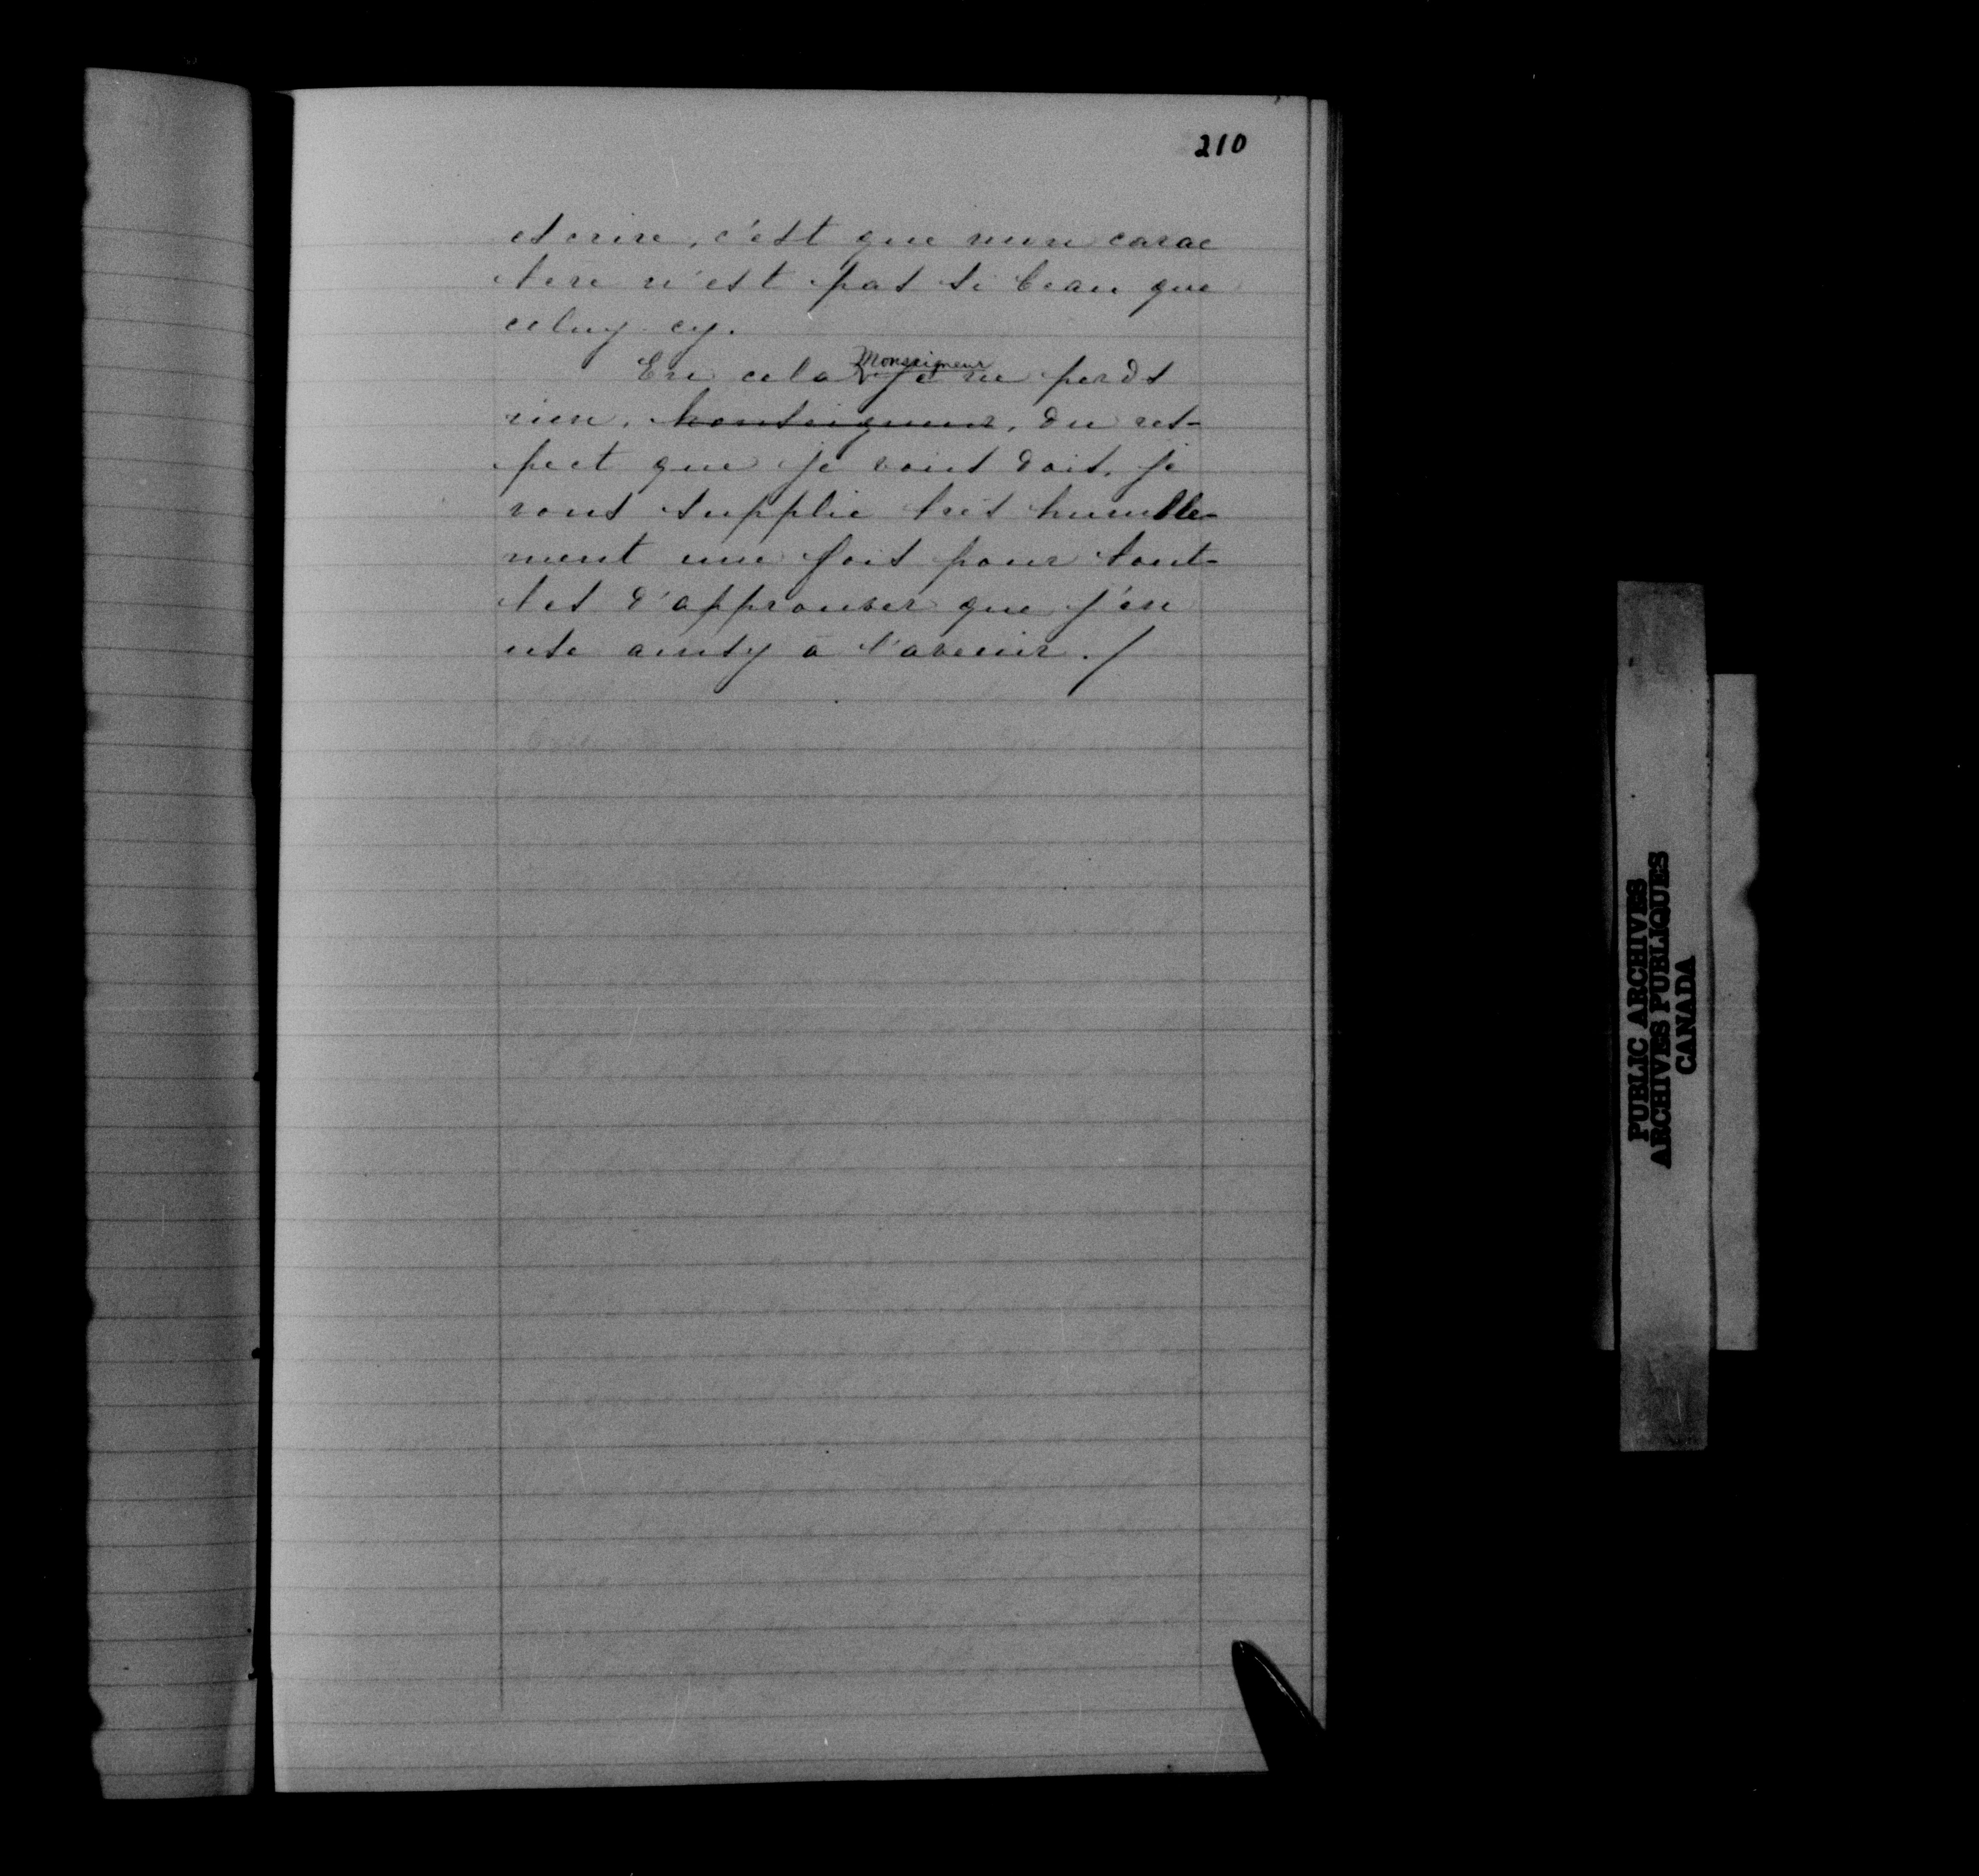 210
escrire, c'est que mon carac
tere n'est pas si beau que
celuy cy.
En cela Monseigneur je ne perds
rien, Monseigneur, du res-
pect que je vous dois, je
vous supplie tres humble-
ment une fois pour tout-
tes d'approuver que j'en
use ainsy à l'avenir./
PUBLIC ARCHIVES
ARCHIVES PUBLIQUES
CANADA